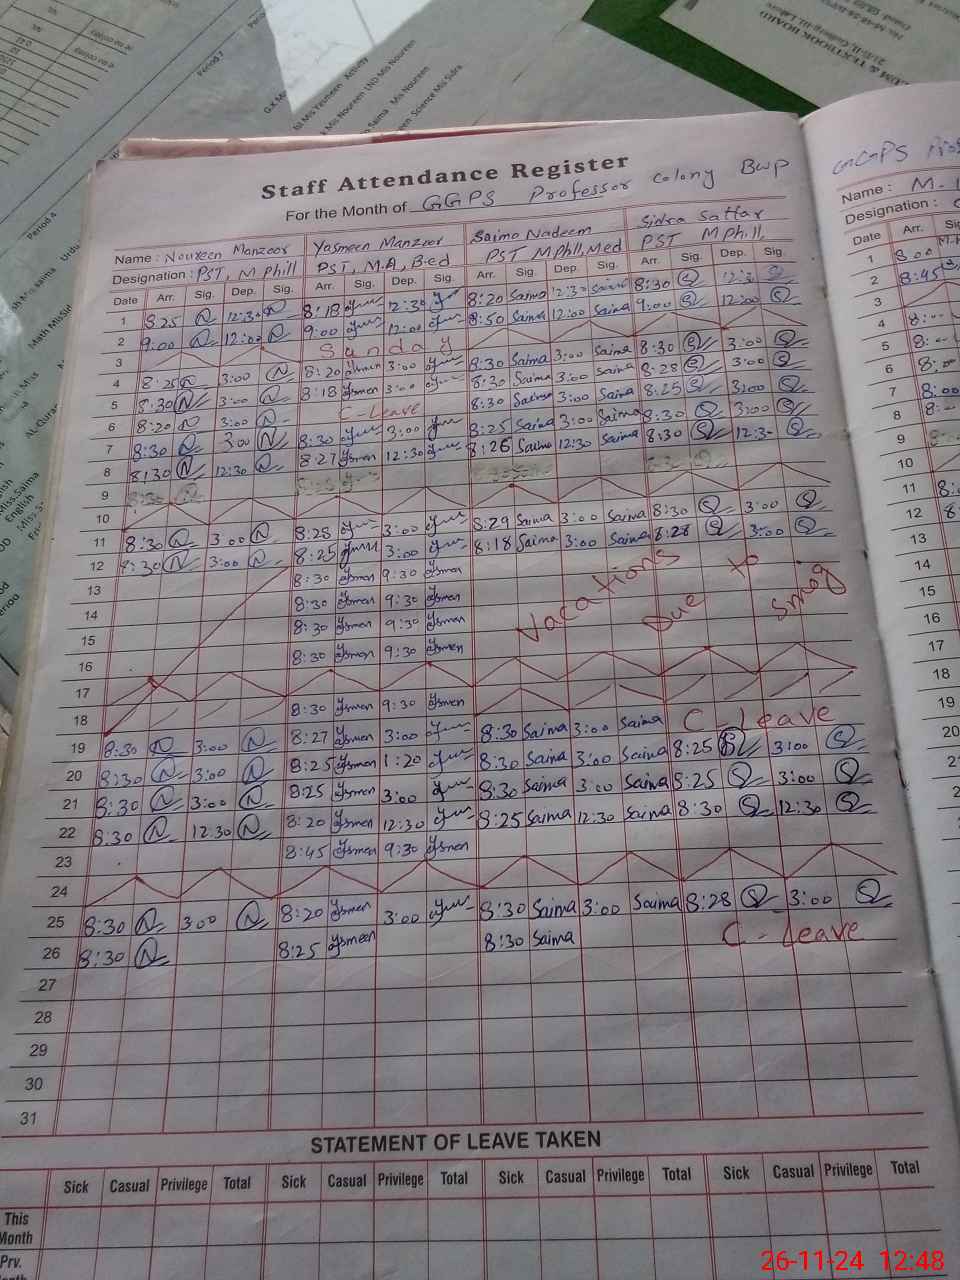 Period 4
Period 7
Urdu
G.K M
Activity
M Miss Yasmeen
Miss Noureen UND Mis Noureen
Saima Mis Noureen
een Science Miss Sidra
Math Mis
Miss
AL-Qura
Miss.Saima
English
M & TEXTBOOK BOARD
Staff Attendance Register
For the Month of GGPS Professor colony Bwp
Name : Noureen Manzoor Yasmeen Manzoor Saima Nadeem Sidra Sattar
Designation : PST, M Phill PST, M.A, B.ed PST M Phll, Med PST M Phill,
Date Arr. Sig. Dep. Sig. Arr. Sig. Dep. Sig. Arr. Sig. Dep. Sig. Arr. Sig. Dep. Sig.
1 8:25 N 12:30 N 8:18 12:30 8:20 Saima 12:30 Saima 8:30 S 12:30 S
2 9:00 N 12:00 N 9:00 12:00 8:50 Saima 12:00 Saima 9:00 S 12:00 S
3 Sunday
4 8:25 N 3:00 N 8:20 3:00 8:30 Saima 3:00 Saima 8:30 S 3:00 S
5 8:30 N 3:00 N 8:18 Ysmen 3:00 8:30 Saima 3:00 Saima 8:28 S 3:00 S
6 8:20 N 3:00 N C-Leave 8:30 Saima 3:00 Saima 8:25 S 3:00 S
7 8:30 N 3:00 N 8:30 3:00 8:25 Saima 3:00 Saima 8:30 S 3:00 S
8 8:30 N 12:30 N 8:27 Ysmen 12:30 8:26 Saima 12:30 Saima 8:30 S 12:30 S
9
10
11 8:30 N 3:00 N 8:28 3:00 8:29 Saima 3:00 Saima 8:30 S 3:00 S
12 8:30 N 3:00 N 8:25 3:00 8:18 Saima 3:00 Saima 8:28 S 3:00 S
13 8:30 Ysmen 9:30 Ysmen
14 8:30 Ysmen 9:30 Ysmen
15 8:30 Ysmen 9:30 Ysmen
16 8:30 Ysmen 9:30 Ysmen
Vacations Due to Smog
17
18 8:30 Ysmen 9:30 Ysmen
19 8:30 N 3:00 N 8:27 Ysmen 3:00 8:30 Saima 3:00 Saima C-Leave
20 8:30 N 3:00 N 8:25 Ysmen 1:20 8:30 Saima 3:00 Saima 8:25 S 3:00 S
21 8:30 N 3:00 N 8:25 Ysmen 3:00 8:30 Saima 3:00 Saima 8:25 S 3:00 S
22 8:30 N 12:30 N 8:20 Ysmen 12:30 8:25 Saima 12:30 Saima 8:30 S 12:30 S
23 8:45 Ysmen 9:30 Ysmen
24
25 8:30 N 3:00 N 8:20 Ysmen 3:00 8:30 Saima 3:00 Saima 8:28 S 3:00 S
26 8:30 N 8:25 Ysmeen 8:30 Saima C-Leave
27
28
29
30
31
STATEMENT OF LEAVE TAKEN
Sick Casual Privilege Total Sick Casual Privilege Total Sick Casual Privilege Total Sick Casual Privilege Total
This Month
Prv.
GGPS
Name : M.
Designation :
Date Arr.
1 8:00
2 8:45
3
4 8:
5 8:
6 8:
7 8:00
8 8:
9
10
11 8:
12 8:
13
14
15
16
17
18
19
20
26-11-24 12:48